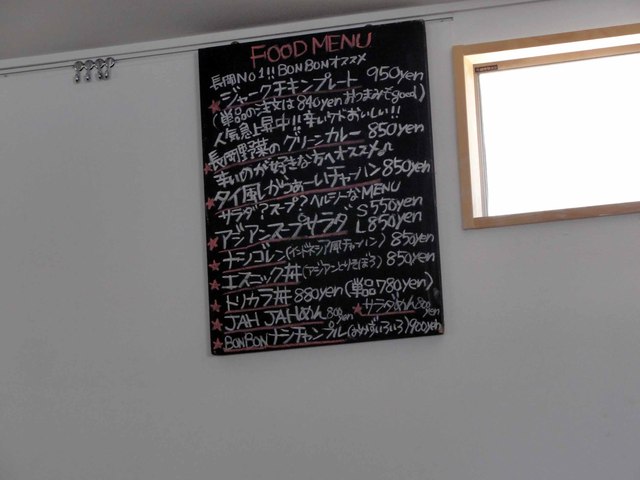 FOOD MENU
長岡No1!! BONBONオススメ
★ジャークチキンプレート 950yen
(単品の注文は840yen おつまみでgood)
人気急上昇中!! 辛いケドおいしい!!
★長岡野菜のグリーンカレー 850yen
辛いのが好きな方へオススメ♪
★タイ風しからぁーいチャーハン 850yen
サラダ?スープ?ヘルシーなMENU
★アジアンスープサラダ S 550yen L 850yen
★ナシゴレン(インドネシア風チャーハン) 850yen
★エスニック丼(アジアンとりそぼろ) 850yen
★トリカラ丼 880yen (単品780yen)
★JAH JAHめん 800yen ★サラダめん 800yen
★BONBONナシチャンプル(おかずいろいろ) 900yen